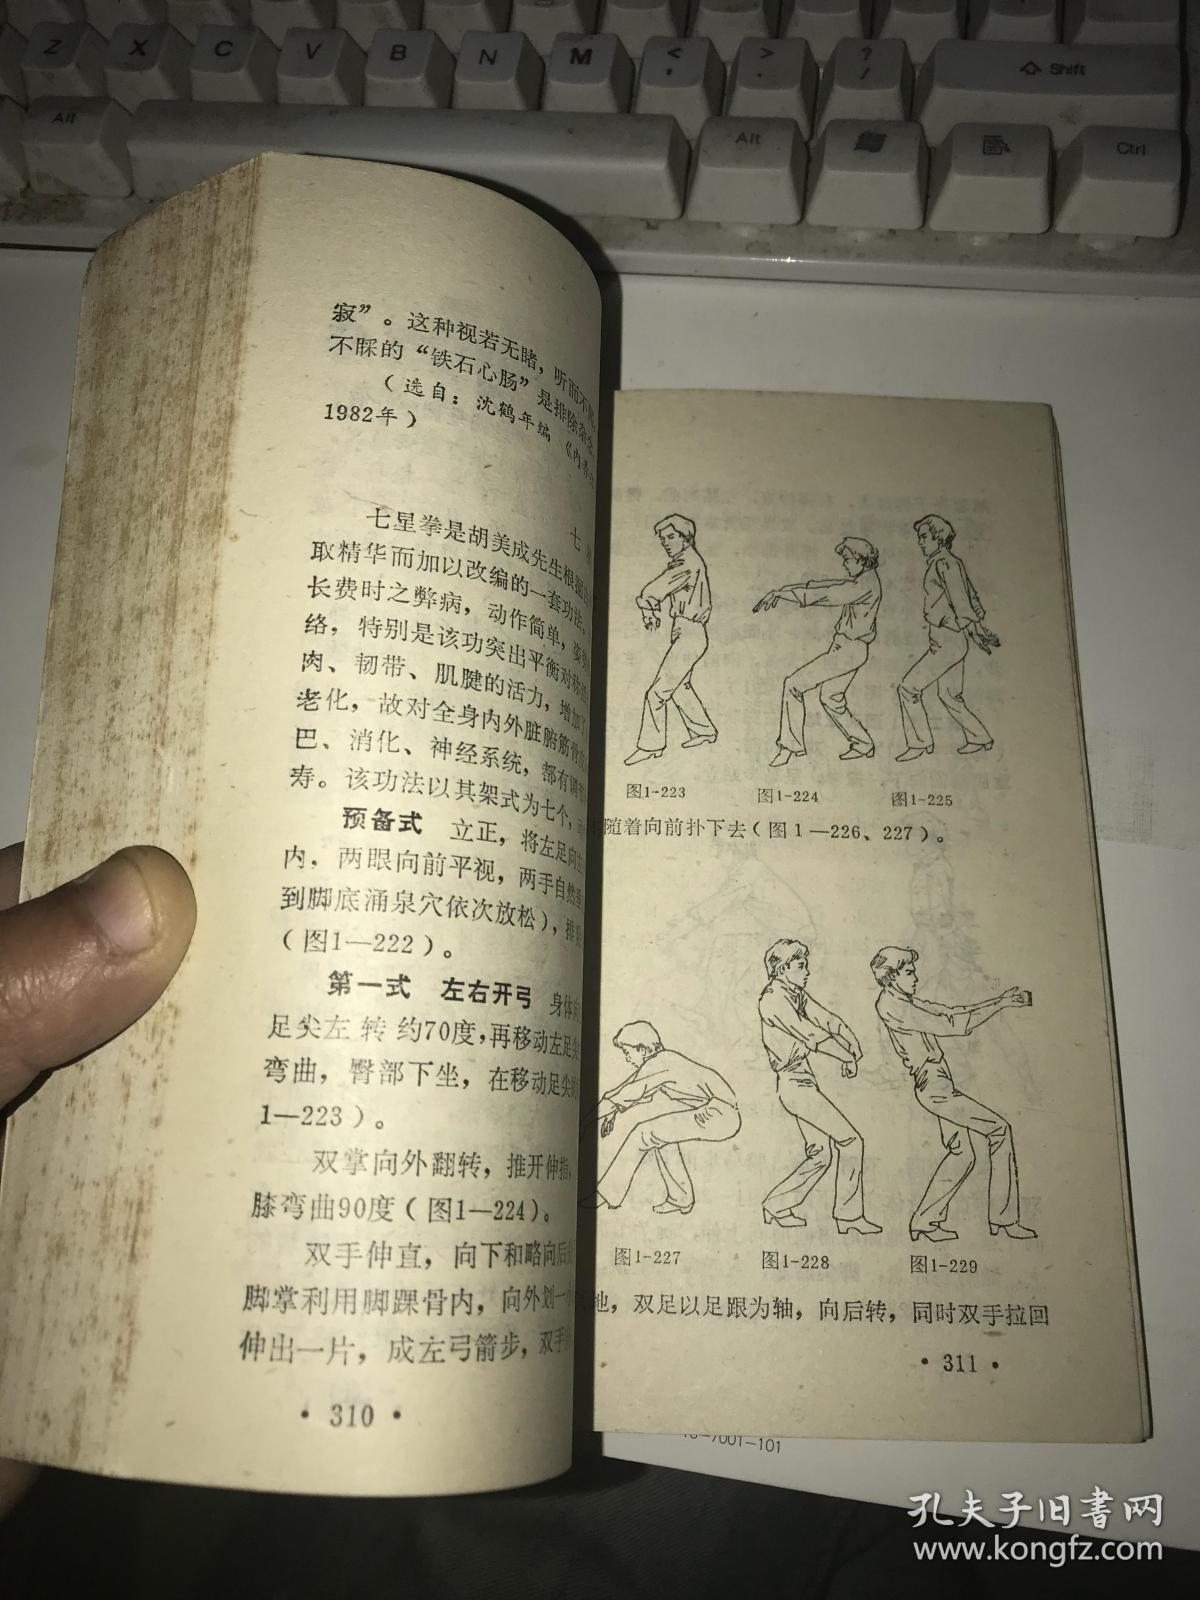 Z X C V B N M < , > . ? / Shift
Alt Alt Ctrl
寂”。这种视若无睹，听而不
不睬的“铁石心肠”是排除杂念
（选自：沈鹤年编《内养
1982年）
七
七星拳是胡美成先生根据
取精华而加以改编的一套功法。
长费时之弊病，动作简单，姿势
络，特别是该功突出平衡对称
肉、韧带、肌腱的活力，增加了
老化，故对全身内外脏腑筋骨
巴、消化、神经系统，都有调
寿。该功法以其架式为七个，
预备式 立正，将左足向左
内，两眼向前平视，两手自然垂
到脚底涌泉穴依次放松），排
（图1—222）。
第一式 左右开弓 身体
足尖左转约70度，再移动左足尖
弯曲，臀部下坐，在移动足尖
1—223）。
双掌向外翻转，推开伸指，
膝弯曲90度（图1—224）。
双手伸直，向下和略向后
脚掌利用脚踝骨内，向外划一
伸出一片，成左弓箭步，双手
·310·
图1-223 图1-224 图1-225
随着向前扑下去（图1—226、227）。
图1-227 图1-228 图1-229
地，双足以足跟为轴，向后转，同时双手拉回
·311·
-7001-101
孔夫子旧书网
www.kongfz.com